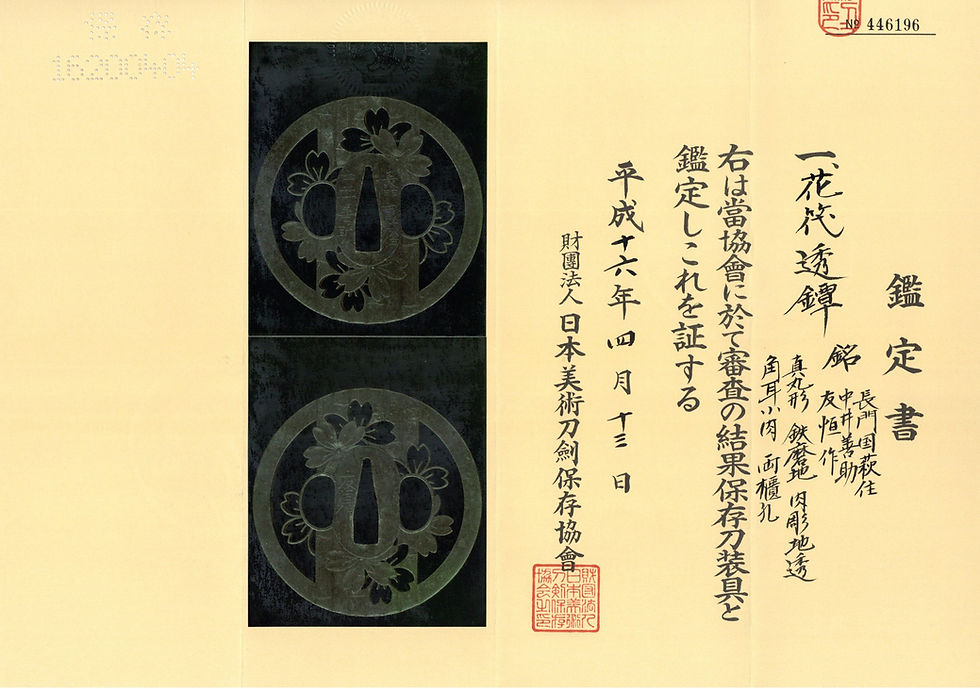 № 446196
鑑定書
一、花筏透鐔
銘 長門国萩住
中井善助
友恒作
真丸形 鉄磨地 肉彫地透
角耳小肉 両櫃孔
右は當協會に於て審査の結果保存刀装具と
鑑定しこれを証する
平成十六年四月十三日
財團法人 日本美術刀劍保存協會
財団法人日本美術刀剣保存協会之印
保存
16200404